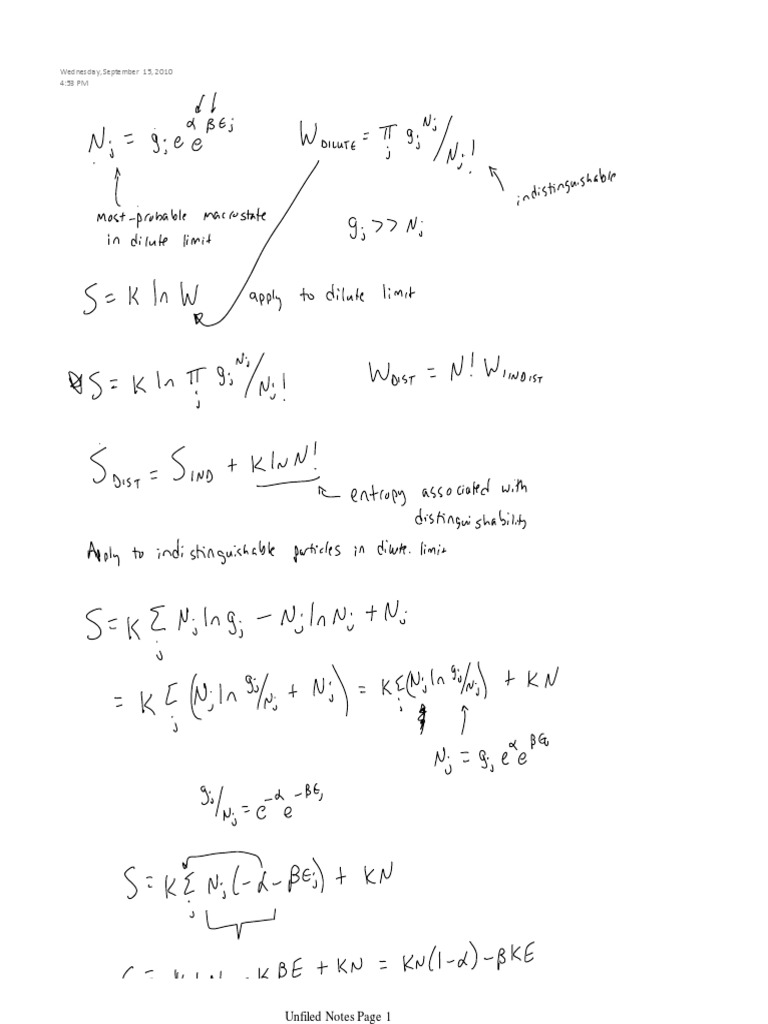 Wednesday, September 15, 2010
4:53 PM
N_j = g_j e^α e^{βϵ_j}
W_DILUTE = π_j g_j^{N_j} / N_j!
indistinguishable
most-probable macrostate
in dilute limit
g_j >> N_j
S = K ln W
apply to dilute limit
S = K ln π_j g_j^{N_j} / N_j!
W_DIST = N! W_INDIST
S_DIST = S_IND + K ln N!
entropy associated with
distinguishability
Apply to indistinguishable particles in dilute limit
S = K Σ_j N_j ln g_j - N_j ln N_j + N_j
= K Σ_j (N_j ln g_j/N_j + N_j) = K Σ_j (N_j ln g_j/N_j) + KN
N_j = g_j e^α e^{βϵ_j}
g_j/N_j = e^{-α} e^{-βϵ_j}
S = K Σ_j N_j (-α - βϵ_j) + KN
KBE + KN = KN(1-α) - βKE
Unfiled Notes Page 1